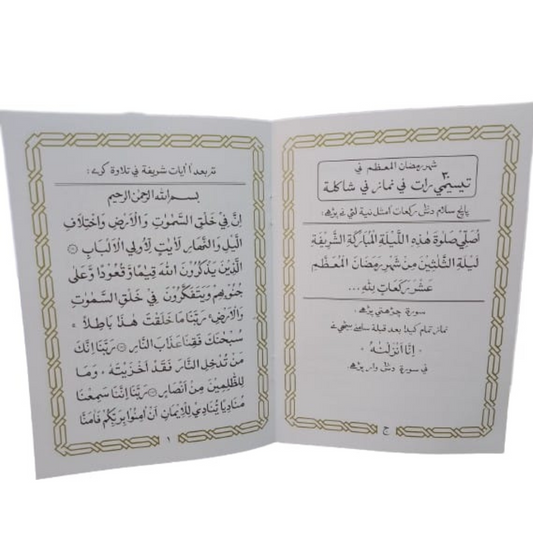 شهر رمضان المعظم ني
تيسمي رات ني نماز ني شاكلة
پانچ سلام دس ركعات أمثل نية لئي نے پڑهے:
أُصَلِّي صَلٰوةَ هٰذِهِ اللَّيْلَةِ الْمُبَارَكَةِ الشَّرِيْفَةِ
لَيْلَةِ الثَّلٰثِيْنَ مِنْ شَهْرِ رَمَضَانَ الْمُعَظَّمِ
عَشَرَ رَكَعَاتٍ لِلّٰهِ...
نماز تمام كيدا بعد قبلة سامنے
إِنَّا أَنْزَلْنٰهُ
ني سورة دس وار پڑهے
ج
تربعد اٰ اٰيات شريفة ني تلاوة كرے:
بسم الله الرحمن الرحيم
إِنَّ فِيْ خَلْقِ السَّمٰوٰتِ وَالْاَرْضِ وَاخْتِلَافِ
الَّيْلِ وَالنَّهَارِ لَاٰيٰتٍ لِاُولِي الْاَلْبَابِ
الَّذِيْنَ يَذْكُرُوْنَ اللهَ قِيَامًا وَّقُعُوْدًا وَّعَلٰى
جُنُوْبِهِمْ وَيَتَفَكَّرُوْنَ فِيْ خَلْقِ السَّمٰوٰتِ
وَالْاَرْضِ رَبَّنَا مَا خَلَقْتَ هٰذَا بَاطِلًا
سُبْحٰنَكَ فَقِنَا عَذَابَ النَّارِ رَبَّنَا اِنَّكَ
مَنْ تُدْخِلِ النَّارَ فَقَدْ اَخْزَيْتَهُ وَمَا
لِلظّٰلِمِيْنَ مِنْ اَنْصَارٍ رَبَّنَا اِنَّنَا سَمِعْنَا
مُنَادِيًا يُّنَادِيْ لِلْاِيْمَانِ اَنْ اٰمِنُوْا بِرَبِّكُمْ فَاٰمَنَّا
١